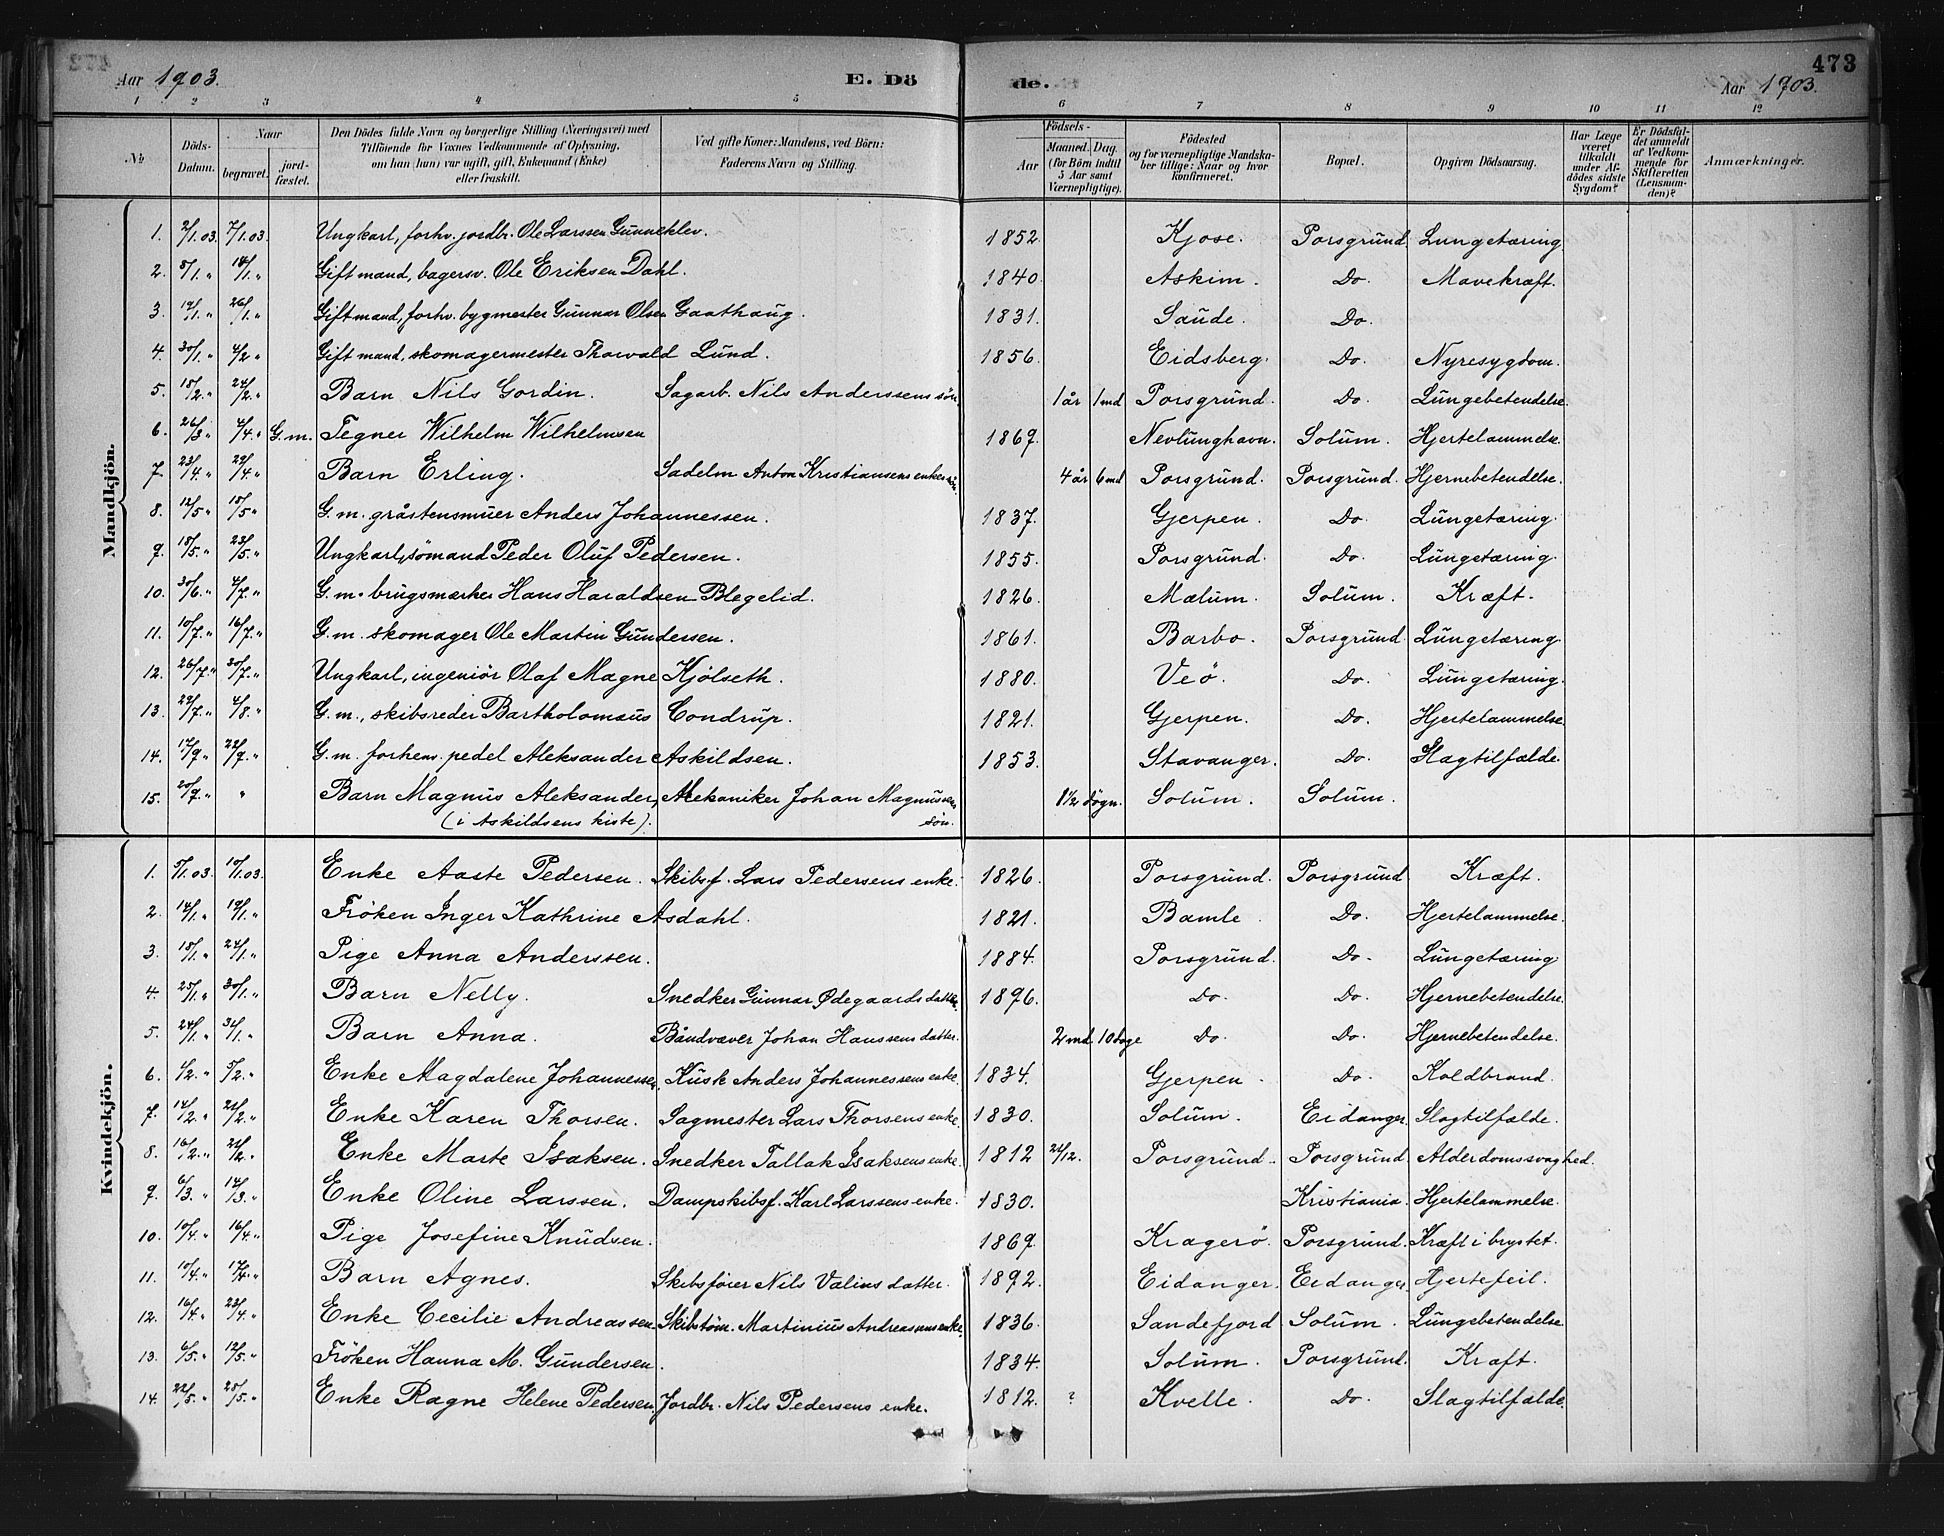 Aar 1903. E. Dö de. Aar 1903. 473
1 2 3 4 5 6 7 8 9 10 11 12
№ Döds-Datum. Naar begravet. jord-fæstet. Den Dödes fulde Navn og borgerlige Stilling (Næringsvei) med Tilföiende for Voxnes Vedkommende af Oplysning, om han (hun) var ugift, gift, Enkemand (Enke) eller fraskilt. Ved gifte Koner: Mandens, ved Börn: Faderens Navn og Stilling. Födsels- Aar Maaned. Dag. (for Börn indtil 5 Aar samt Værnepligtige). Födested og for værnepligtige Mandska-ber tillige: Naar og hvor konfirmeret. Bopæl. Opgiven Dödsaarsag. Har Læge været tilkaldt under Af-dödes sidste Sygdom? Er Dödsfal-det anmeldt af Vedkom-mende for Skifteretten (Lensman-den)? Anmærkninger.
Mandkjön.
1. 2/1.03. 7/1.03. Ungkarl, forhv. jordbr. Ole Larssen Gunneklev. 1852. Kjose. Porsgrund. Lungetæring.
2. 8/1. " 14/1. " Gift mand, bagersv. Ole Eriksen Dahl. 1840. Askim. Do. Mavekræft.
3. 19/1. " 26/1. " Gift mand, forhv. bygmester Gunnar Olsen Gaathaug. 1831. Saude. Do.
4. 30/1. " 4/2. " Gift mand, skomagermester Thorvald Lund. 1856. Eidsberg. Do. Nyresygdom.
5. 18/2. " 24/2. " Barn Nils Gordin. Sagarb. Nils Anderssens sön. 1 år 1 md Porsgrund. Do. Lungebetendelse.
6. 26/3. " 4/4. " G.m. Tegner Wilhelm Wilhelmsen 1867. Nevlunghavn. Solum. Hjertelammelse.
7. 23/4. " 29/4. " Barn Erling. Sadelm Anton Kristiansens enkes sön. 4 år 6 md Porsgrund. Porsgrund. Hjernebetendelse.
8. 12/5. " 18/5. " G.m. gråstensmuer Anders Johannessen. 1837. Gjerpen. Do. Lungetæring.
9. 18/5. " 23/5. " Ungkarl, sömand Peder Oluf Pedersen. 1855. Porsgrund. Do. Lungetæring.
10. 30/6. " 4/7. " G.m. brugsmærker Hans Haraldsen Blegelid. 1826. Mælum. Solum. Kræft.
11. 10/7. " 16/7. " G.m. skomager Ole Martin Gundersen. 1861. Barbo. Porsgrund. Lungetæring.
12. 26/7. " 30/7. " Ungkarl, ingeniör Olaf Magne Kjölseth. 1880. Veö. Do. Lungetæring.
13. 29/7. " 4/8. " G.m., skibsreder Bartholomæus Condrup. 1821. Gjerpen. Do. Hjertelammelse.
14. 17/9. " 22/9. " G.m. forhenv. pedel Aleksander Askildsen. 1853. Stavanger. Do. Slagtilfælde.
15. 20/9. " " Barn Magnus Aleksander, Mekaniker Johan Magnussens 1½ dögn. Solum. Solum.
(i Askildsens kiste). sön.
Kvindekjön.
1. 5/1.03. 10/1.03. Enke Aaste Pedersen. Skibsf. Lars Pedersens enke. 1826. Porsgrund. Porsgrund. Kræft.
2. 14/1. " 19/1. " Fröken Inger Kathrine Asdahl. 1821. Bamle. Do. Hjertelammelse.
3. 18/1. " 24/1. " Pige Anna Anderssen. 1884. Porsgrund. Do. Lungetæring
4. 25/1. " 30/1. " Barn Nelly. Snedker Gunnar Ødegaards datter. 1896. Do. Do. Hjernebetendelse.
5. 24/1. " 31/1. " Barn Anna. Båndvæver Johan Hanssens datter. 2 md. 10 dage Do. Do. Hjernebetendelse.
6. 1/2. " 5/2. " Enke Magdalene Johannessen. Kusk Anders Johannessens enke. 1834. Gjerpen. Do. Koldbrand.
7. 14/2. " 21/2. " Enke Karen Thorsen. Sagmester Lars Thorsens enke. 1830. Solum. Eidanger. Slagtilfælde.
8. 16/2. " 21/2. " Enke Marte Isaksen. Snedker Tallak Isaksens enke. 1812 24/12. Porsgrund. Porsgrund Alderdomssvaghed.
9. 6/3. " 14/3. " Enke Oline Larssen. Dampskibsf. Karl Larssens enke. 1830. Kristiania. Hjertelammelse.
10. 10/4. " 16/4. " Pige Josefine Knudsen. 1869. Kragerö. Porsgrund. Kræft i brystet.
11. 10/4. " 17/4. " Barn Agnes. Skibsförer Nils Valins datter. 1892. Eidanger. Eidanger. Hjertefeil.
12. 16/4. " 23/4. " Enke Cecilie Andreassen. Skibstöm. Martinius Andreassens enke. 1836. Sandefjord Solum. Lungebetendelse
13. 6/5. " 12/5. " Fröken Hanna M. Gundersen. 1834. Solum. Porsgrund. Kræft.
14. 22/5. " 25/5. " Enke Ragne Helene Pedersen. Jordbr. Nils Pedersens enke. 1812. ? Kvelle. Do. Slagtilfælde.